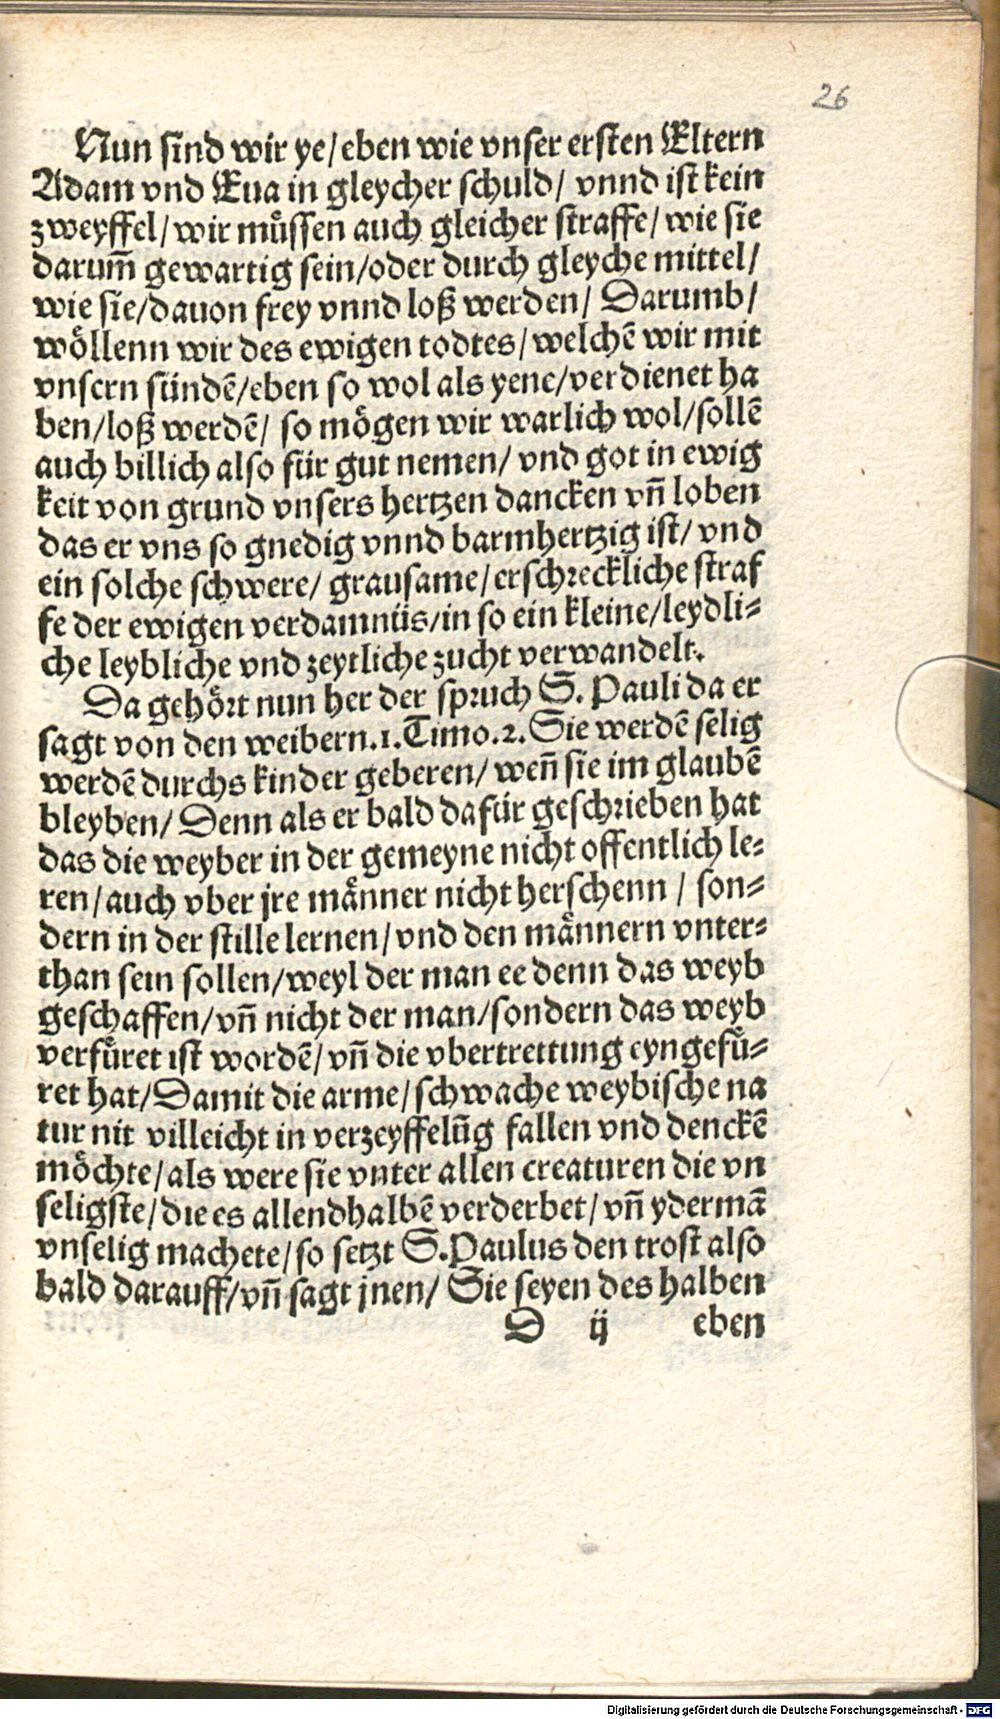 26
Nun sind wir ye/eben wie vnser ersten Eltern
Adam vnd Eua in gleycher schuld/ vnnd ist kein
zweyffel/wir müssen auch gleicher straffe/wie sie
darum̃ gewartig sein/oder durch gleyche mittel/
wie sie/dauon frey vnnd loß werden/ Darumb/
wöllenn wir des ewigen todtes/welchẽ wir mit
vnsern sündẽ/eben so wol als yene/verdienet ha
ben/loß werdẽ/ so mögen wir warlich wol/sollẽ
auch billich also für gut nemen/ vnd got in ewig
keit von grund vnsers hertzen dancken vñ loben
das er vns so gnedig vnnd barmhertzig ist/ vnd
ein solche schwere/ grausame/erschreckliche straf
fe der ewigen verdamnüs/in so ein kleine/leydli-
che leybliche vnd zeytliche zucht verwandelt.
Da gehört nun her der spruch S. Pauli da er
sagt von den weibern.1.Timo.2.Sie werdẽ selig
werdẽ durchs kinder geberen/ weñ sie im glaubẽ
bleyben/ Denn als er bald dafür geschrieben hat
das die weyber in der gemeyne nicht offentlich le-
ren/auch vber jre männer nicht herschenn / son-
dern in der stille lernen/vnd den männern vnter-
than sein sollen/weyl der man ee denn das weyb
geschaffen/vñ nicht der man/sondern das weyb
verfüret ist wordẽ/vñ die vbertrettung eyngefü-
ret hat/Damit die arme/schwache weybische na
tur nit villeicht in verzeyffelũg fallen vnd denckẽ
möchte/als were sie vnter allen creaturen die vn
seligste/die es allendhalbẽ verderbet/vñ ydermã
vnselig machete/so setzt S.Paulus den trost also
bald darauff/vñ sagt jnen/ Sie seyen des halben
D ij eben
Digitalisierung gefördert durch die Deutsche Forschungsgemeinschaft - DFG